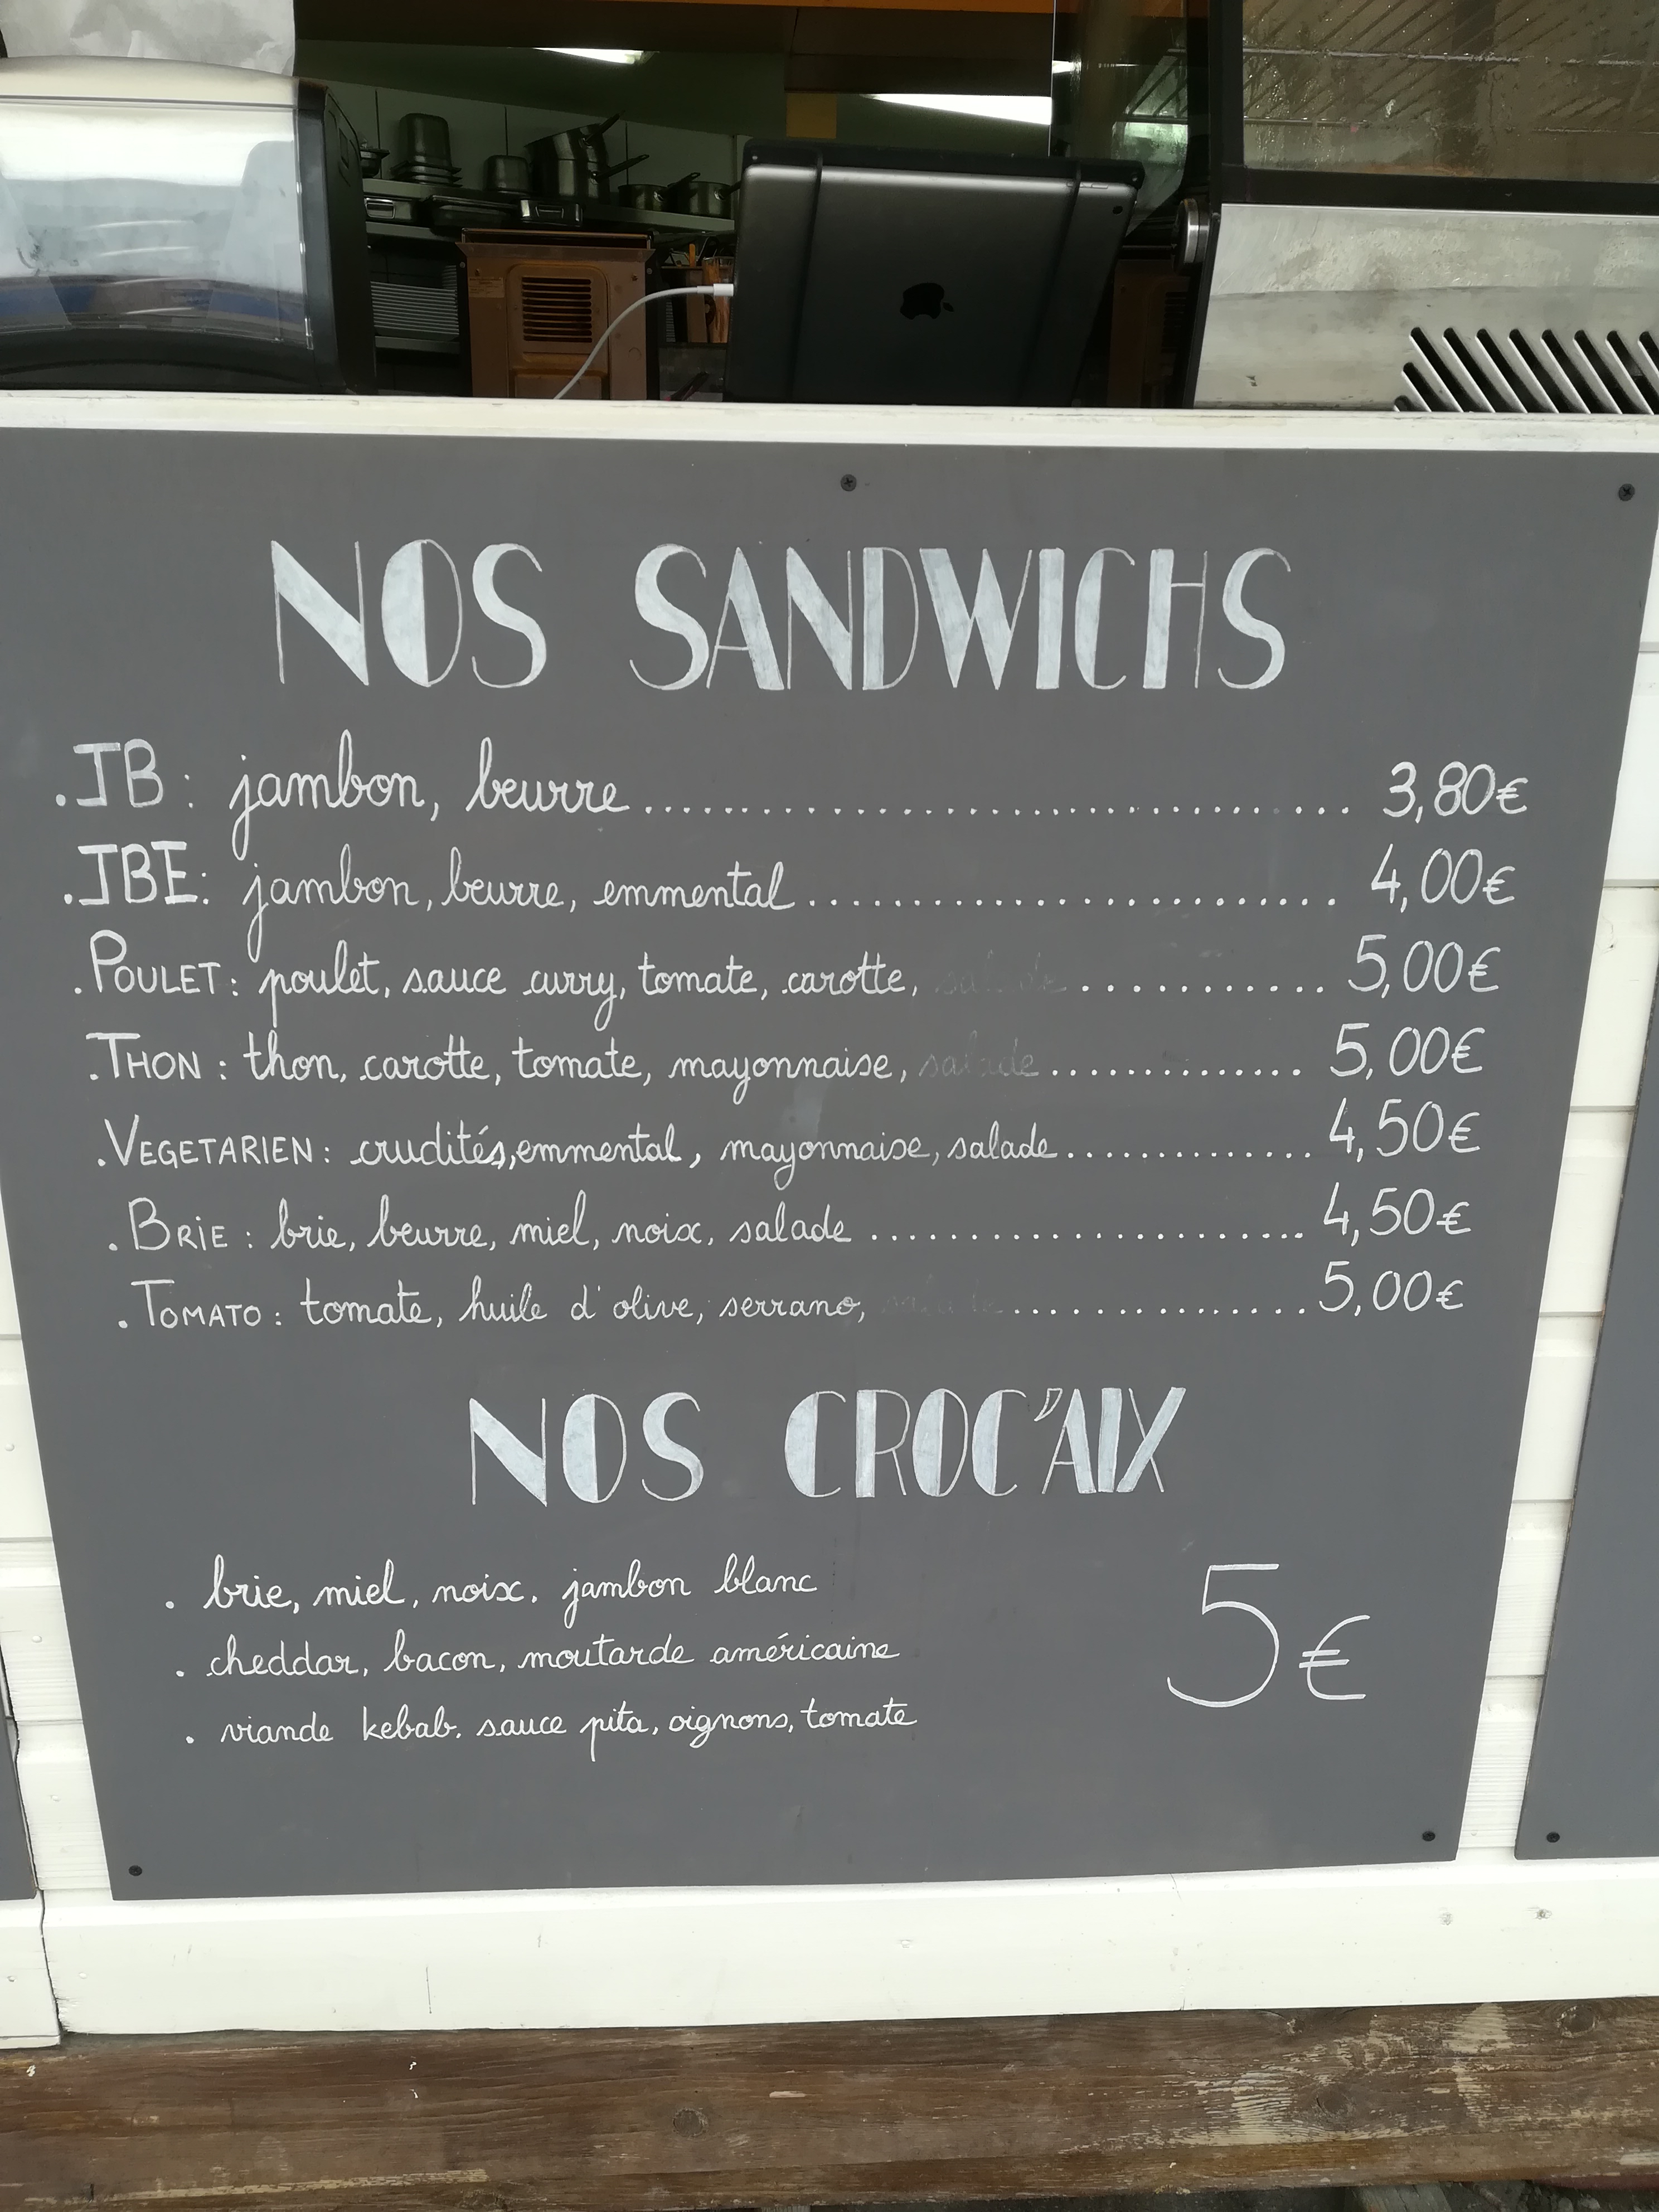 NOS SANDWICHS
.JB : jambon, beurre.................................... 3,80€
.JBE: jambon, beurre, emmental........................... 4,00€
.POULET : poulet, sauce curry, tomate, carotte, salade............. 5,00€
.THON : thon, carotte, tomate, mayonnaise, salade.............. 5,00€
.VEGETARIEN : crudités,emmental, mayonnaise, salade.............. 4,50€
.BRIE : brie, beurre, miel, noix, salade...................... 4,50€
.TOMATO : tomate, huile d'olive, serrano, salade............... 5,00€
NOS CROC'AIX
. brie, miel, noix, jambon blanc
. cheddar, bacon, moutarde américaine
5€
. viande kebab, sauce pita, oignons, tomate